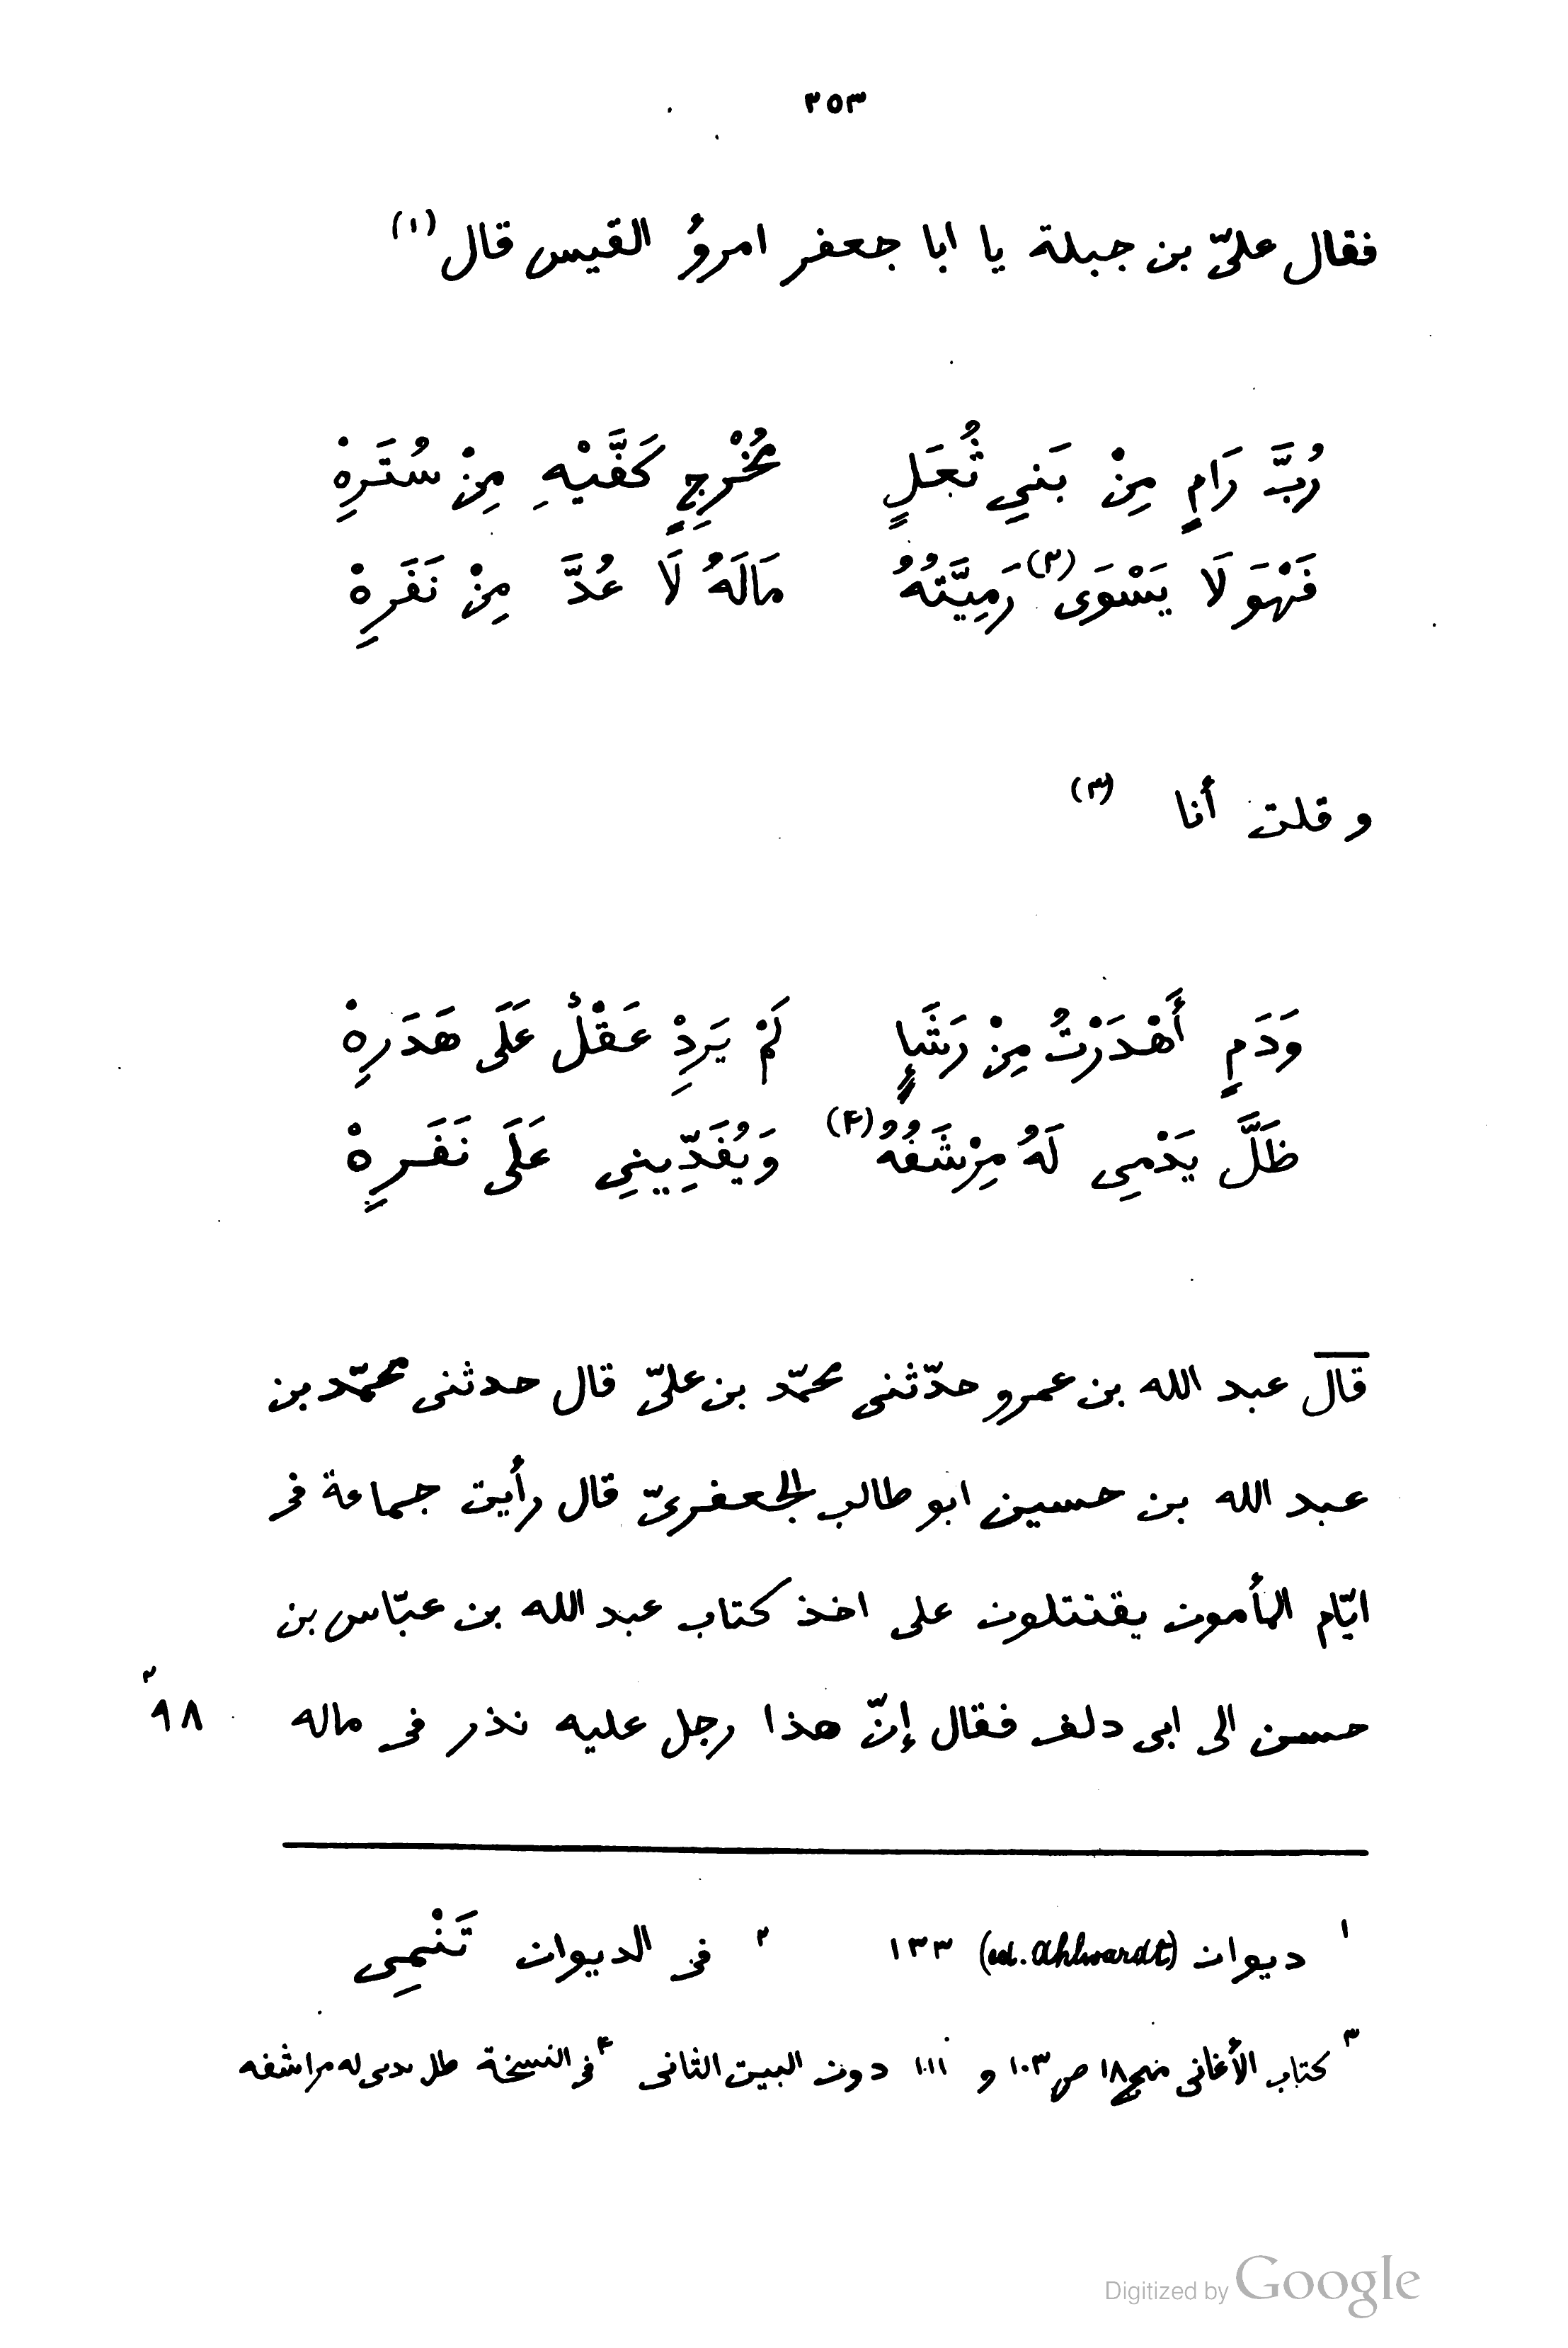 ٢٥٣
فقال علىّ بن جبلة يا ابا جعفر امرؤ القيس قال (١)
رُبَّ رَامٍ مِنْ بَنِي ثُعَلٍ مُخْرِجٍ كَفَّيْهِ مِنْ سُتَرِهْ
فَهْوَ لَا يَسْوَى (٢) رَمِيَّتُهُ مَالَهُ لَا عُدَّ مِنْ نَفَرِهْ
و قلت أنا (٣)
وَدَمٍ أَهْدَرْتُ مِنْ رَشَإٍ لَمْ يَرِدْ عَقْلٌ عَلَى هَدَرِهْ
ظَلَّ يَدْمِى لَهُ مِرْشَفُهُ (۴) وَيُفَدِّينِى عَلَى نَفَرِهْ
قال عبد الله بن عمرو حدّثنى محمّد بن علىّ قال حدثنى محمّد بن
عبد الله بن حسين ابو طالب الجعفرىّ قال رأيت جماعة فى
ايّام المأمون يقتتلون على اخذ كتاب عبد الله بن عبّاس بن
حسن الى ابى دلف فقال إنّ هذا رجل عليه نذر فى ماله ٩٨٢
١ ديوان (ed. Ahlwardt) ١٣٣ ٢ فى الديوان تَنْمِى
٣ كتاب الأغانى ١٨ ص ١٠٣ و ١١١ دون البيت الثانى ۴ فى النسخة طل ىدمى له مراشفه
Digitized by Google